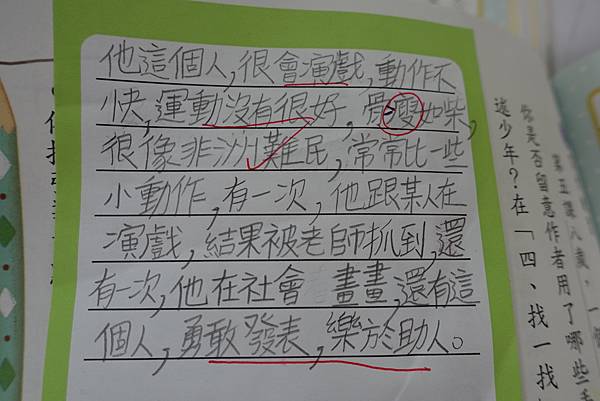 他這個人,很會演戲,動作不
快,運動沒有很好,骨瘦如柴,
很像非洲難民,常常比一些
小動作,有一次,他跟某人在
演戲,結果被老師抓到,還
有一次,他在社會 畫畫,還有這
個人,勇敢發表,樂於助人。
你是否留意作者用了哪些
述少年?在「四、找一找